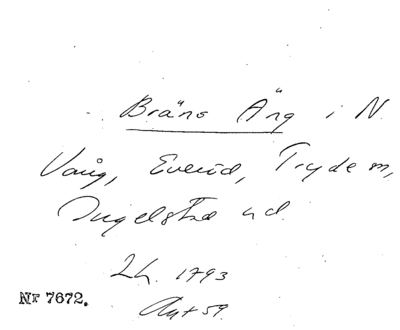 Bräns Äng i N
Vång, Everöd, Tryde sn,
Ingelstad hd.
Lh. 1793
Akt 59.
Nr 7672.